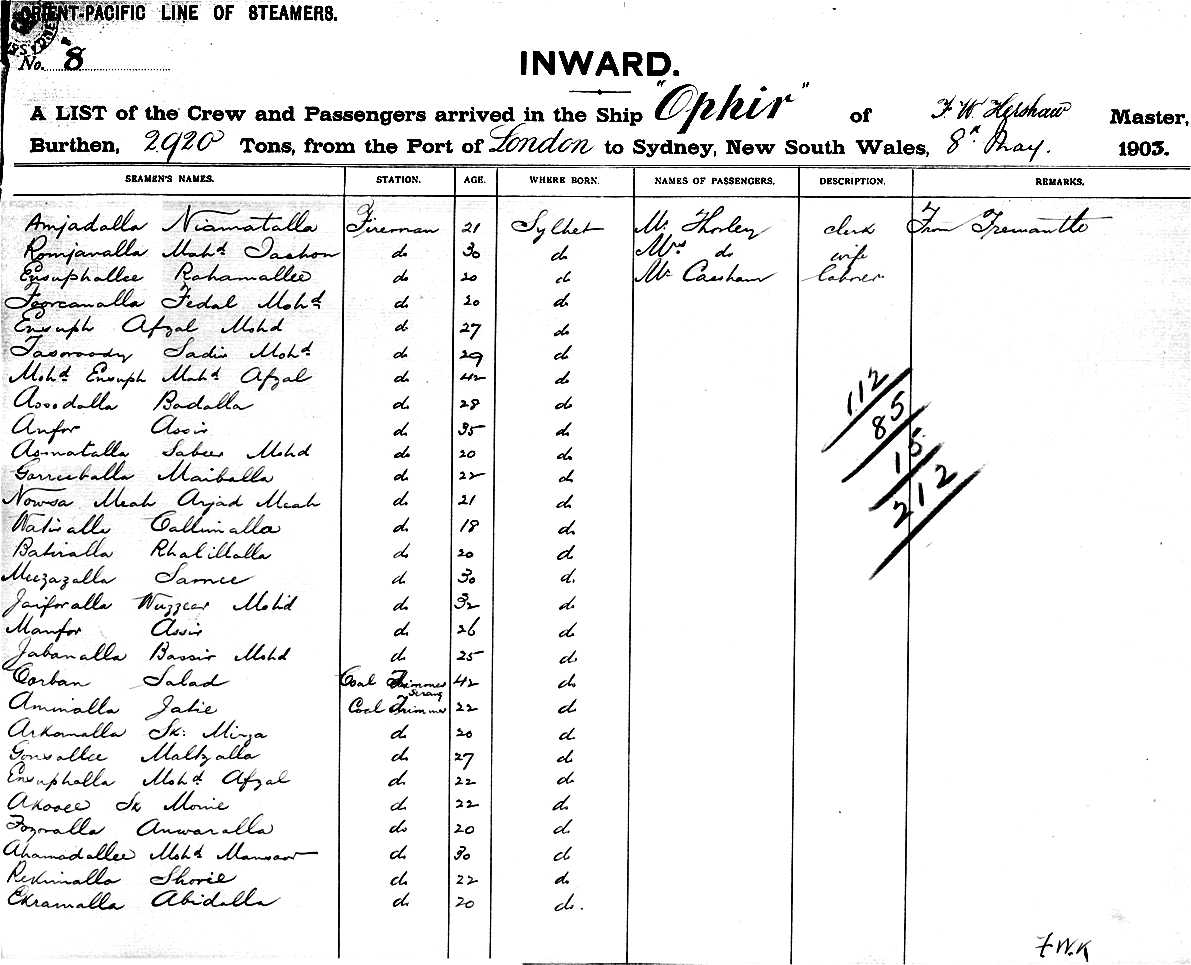 ORIENT-PACIFIC LINE OF STEAMERS.
No. 8
INWARD.
A LIST of the Crew and Passengers arrived in the Ship "Ophir" of F. W. Kershaw Master,
Burthen, 2920 Tons, from the Port of London to Sydney, New South Wales, 8th May. 1903.
SEAMEN'S NAMES. STATION. AGE. WHERE BORN. NAMES OF PASSENGERS. DESCRIPTION. REMARKS.
Amjadalla Niamatalla Fireman 21 Sylhet Mr Thorley clerk From Fremantle
Romjanalla Mahd Jashon do 30 do Mrs do wife
Ensuphallee Rahamallee do 20 do Mr Carshaw
Fedal Mohd do 20 do
Ensuph Afzal Mohd do 27 do
Sadir Mohd do 29 do
Mohd Ensuph Mahd Afzal do 42 do
Assodalla Badalla do 28 do
Anfor Assir do 35 do
Asmatalla Saber Mohd do 20 do
Maiballa do 22 do
Nowsa Meah Arjad Meah do 21 do
Callimalla do 18 do
Batiralla Khalilla do 20 do
Samee do 30 do.
Jaiforalla Wuzzeer Mohd do 32 do
Manfor Assir do 26 do
Jabanalla Bassir Mohd do 25 do
Corban Salad Coal Trimmer Serang 42 do
Aminalla Jatie Coal Trimmer 22 do
Arkamalla Sk: Mirza do 20 do
do 27 do
Ensuphalla Mohd Afzal do 22 do
Sk Monie do 22 do
Fozoralla Anwaralla do 20 do
Ahamadallee Mohd Mansoor do 30 do
Shorie do 22 do
Ekramalla Abidalla do 20 do.
112
85
15
212
F.W.K